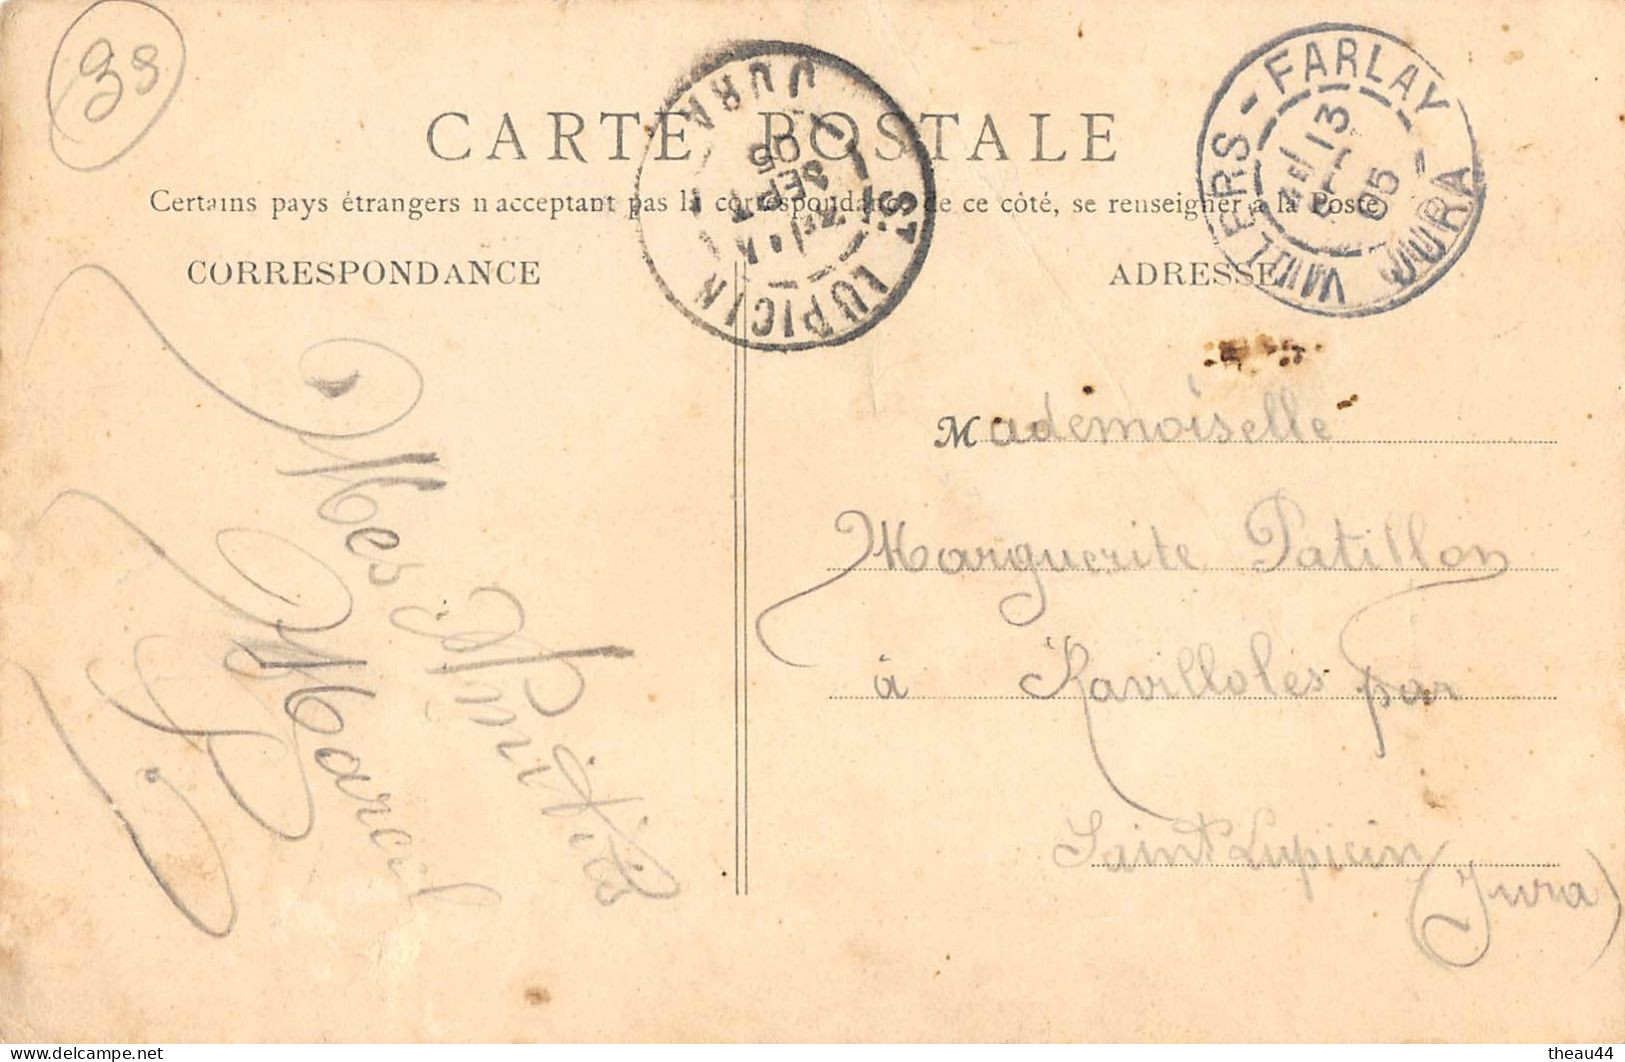 39
CARTE POSTALE
Certains pays étrangers n'acceptant pas la correspondance de ce côté, se renseigner à la Poste
CORRESPONDANCE
ADRESSE
ST LUPICIN
JURA
SEPT
05
VILLERS-FARLAY
JURA
13
05
Mademoiselle
Marguerite Patillon
à Ravilloles par
Saint Lupicin (Jura)
Mes Amitiés
Marcel
theau44